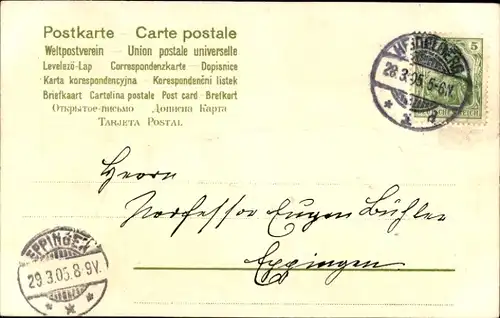 Postkarte – Carte postale
Weltpostverein – Union postale universelle
Levelező-Lap – Correspondenzkarte – Dopisnice
Karta korespondencyjna – Korespondenční lístek
Briefkaart – Cartolina postale – Post card – Brefkort
Открытое письмо – Дописна Карта
Tarjeta Postal
5
HEIDELBERG
28.3.05.5-6V.
* 1 *
Herrn
Professor Eugen Bühler
Eppingen
EPPINGEN
29.3.05.8-9V.